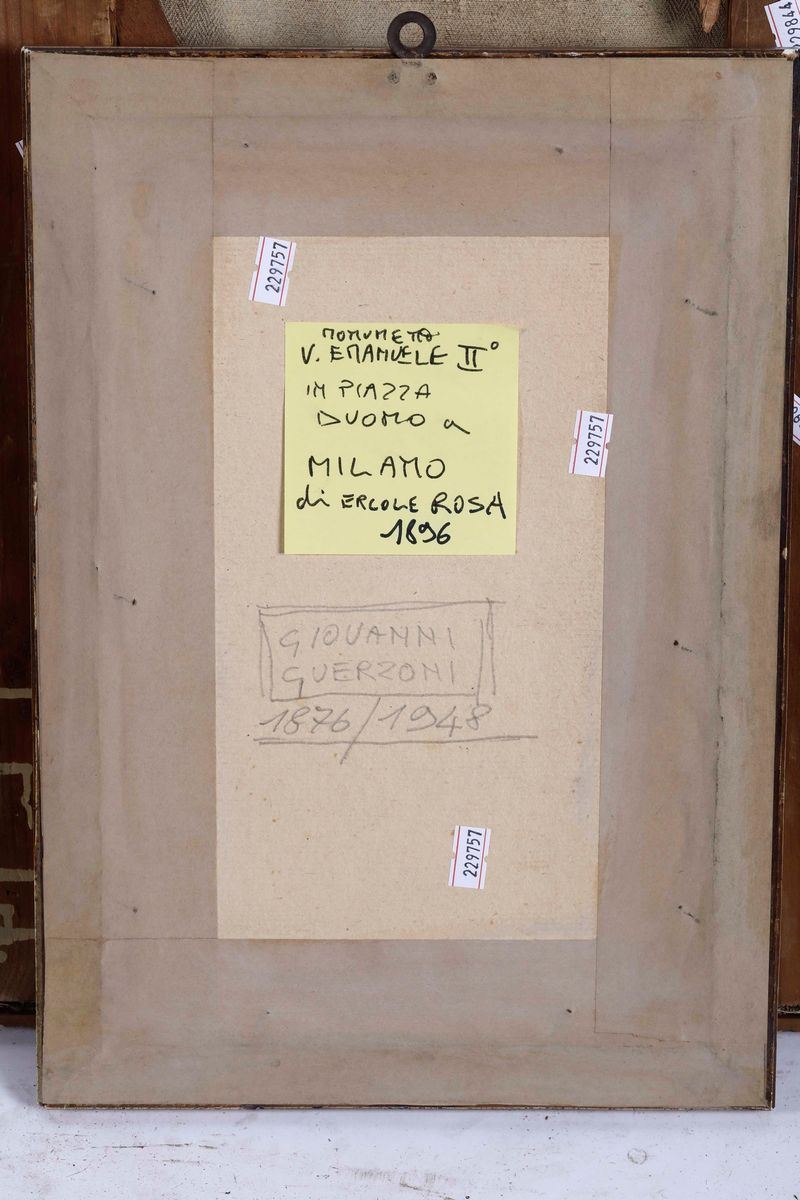 229844
229757
MONUMETO
V. EMANUELE II°
IN PIAZZA
DUOMO a
MILANO
di ERCOLE ROSA
1896
229757
GIOVANNI
GUERZONI
1876/1948
229757